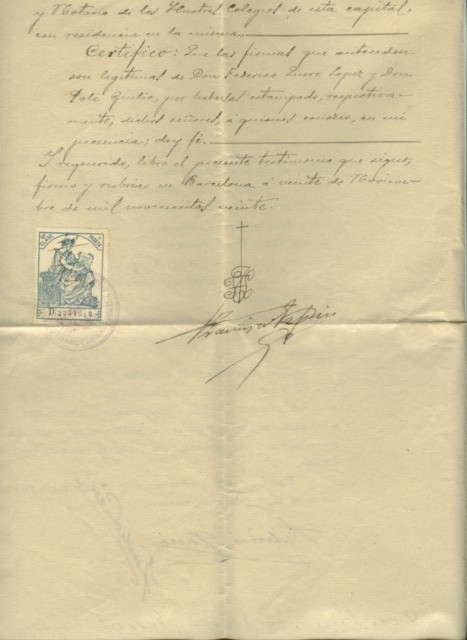 y Notario de los Ilustres Colegios de esta capital,
con residencia en la misma.
Certifico: Que las firmas que anteceden
son legítimas de Don Federico Lopez y Don
por haberlas estampado, respectiva-
mente, dichos señores, a quienes conozco, en mi
presencia; doy fé.
Y requerido, libro el presente testimonio que signo,
firmo y rubrico en Barcelona á veinte de Noviem-
bre de mil novecientos veinte.
Francisco